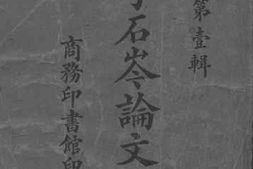 第壹輯
石岑論文
商務印書館印